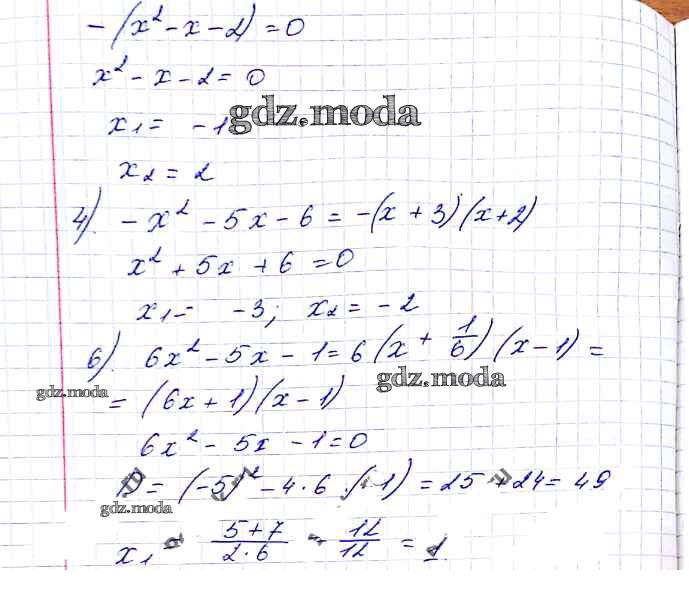 -(x² - x - 2) = 0
x² - x - 2 = 0
x₁ = -1
gdz.moda
x₂ = 2
4). -x² - 5x - 6 = -(x + 3)(x + 2)
x² + 5x + 6 = 0
x₁ = -3; x₂ = -2
6). 6x² - 5x - 1 = 6(x + 1/6)(x - 1) =
gdz.moda
gdz.moda
= (6x + 1)(x - 1)
6x² - 5x - 1 = 0
D = (-5)² - 4 · 6 · (-1) = 25 + 24 = 49
gdz.moda
x₁ = (5+7)/(2·6) = 12/12 = 1